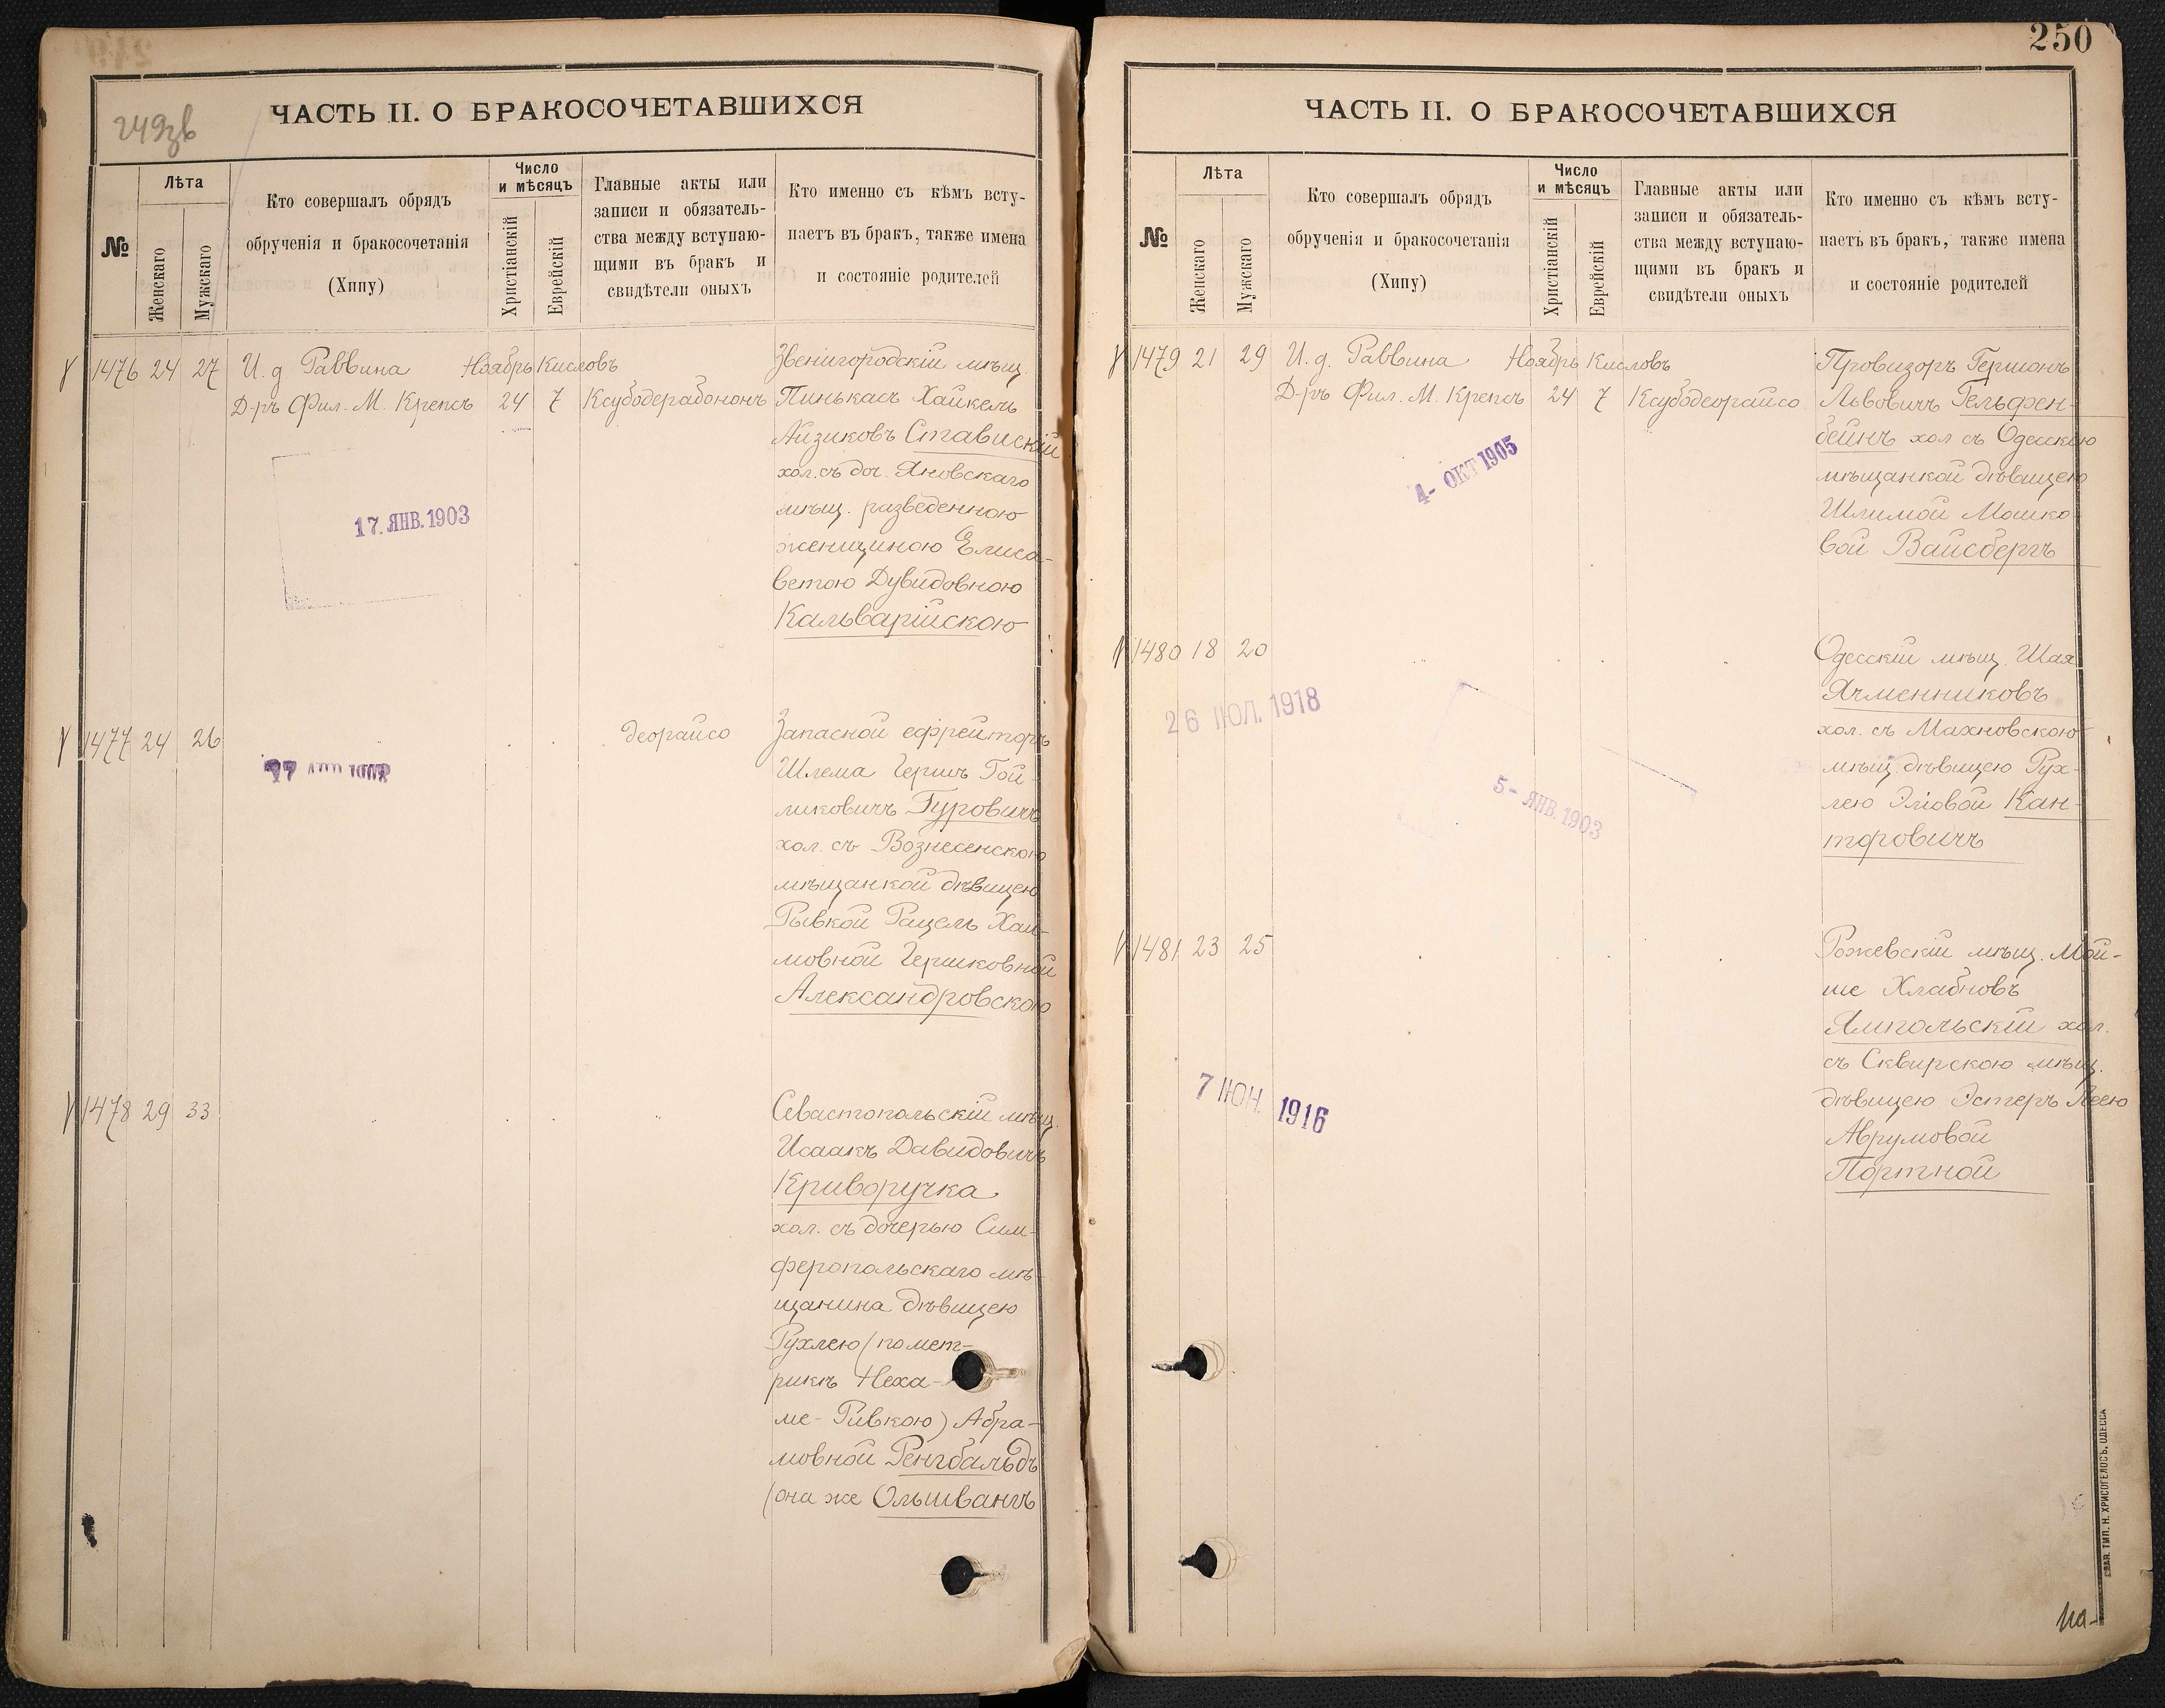 249зв
ЧАСТЬ II. О БРАКОСОЧЕТАВШИХСЯ
№
Лѣта
Женскаго
Мужскаго
Кто совершалъ обрядъ
обрученія и бракосочетанія
(Хипу)
Число
и мѣсяцъ
Христіанскій
Еврейскій
Главные акты или
записи и обязатель-
ства между вступаю-
щими въ бракъ и
свидѣтели оныхъ
Кто именно съ кѣмъ всту-
паетъ въ бракъ, также имена
и состояніе родителей
1476 24 27 И. д Раввина Ноябрь Кисловъ
Д-ръ Фил. М. Крепсъ 24 7 Ксубодерабононъ
Звенигородскій мѣщ.
Пинькасъ Хайкель
Айзиковъ Ставискій
хол. съ доч. Яновскаго
мѣщ. разведенною
женщиною Елиса-
ветою Дувидовною
Кальварійскою
17. ЯНВ. 1903
1477 24 26 деорайсо
Запасной ефрейторъ
Шлема Гершъ Гой-
ликовичъ Гуровичъ
хол. съ Вознесенскою
мѣщанкой дѣвицею
Рывкой Рацель Хаи-
мовной Гершковной
Александровскою
1478 29 33
Севастопольскій мѣщ.
Исаакъ Давидовичъ
Криворучка
хол. съ дочерью Сим-
феропольскаго мѣ-
щанина дѣвицею
Рухлею (по мет-
рикѣ Неха-
ме-Ривкою) Абра-
мовной Ренгбальдъ
(она же Ольшвангъ
250
ЧАСТЬ II. О БРАКОСОЧЕТАВШИХСЯ
№
Лѣта
Женскаго
Мужскаго
Кто совершалъ обрядъ
обрученія и бракосочетанія
(Хипу)
Число
и мѣсяцъ
Христіанскій
Еврейскій
Главные акты или
записи и обязатель-
ства между вступаю-
щими въ бракъ и
свидѣтели оныхъ
Кто именно съ кѣмъ всту-
паетъ въ бракъ, также имена
и состояніе родителей
1479 21 29 И. д. Раввина Ноябрь Кисловъ
Д-ръ Фил. М. Крепсъ 24 7 Ксубодеорайсо
Провизоръ Гершонъ
Львовичъ Гельфен-
бейнъ хол съ Одесскою
мѣщанкой дѣвицею
Шлимой Мошко-
вой Вайсбергъ
4- ОКТ 1905
1480 18 20
Одесскій мѣщ. Шая
Ячменниковъ
хол. съ Махновскою
мѣщ. дѣвицею Рух-
лею Эліовой Кан-
торовичъ
26 ІЮЛ. 1918
5- ЯНВ. 1903
1481 23 25
Рожевскій мѣщ. Мой-
ше Хлабновъ
Ямпольскій хол.
съ Сквирскою мѣщ.
дѣвицею Эстеръ Леею
Аврумовой
Портной
7 ІЮН. 1916
СЛАВ. ТИП. Н. ХРИСОГЕЛОСЪ, ОДЕССА